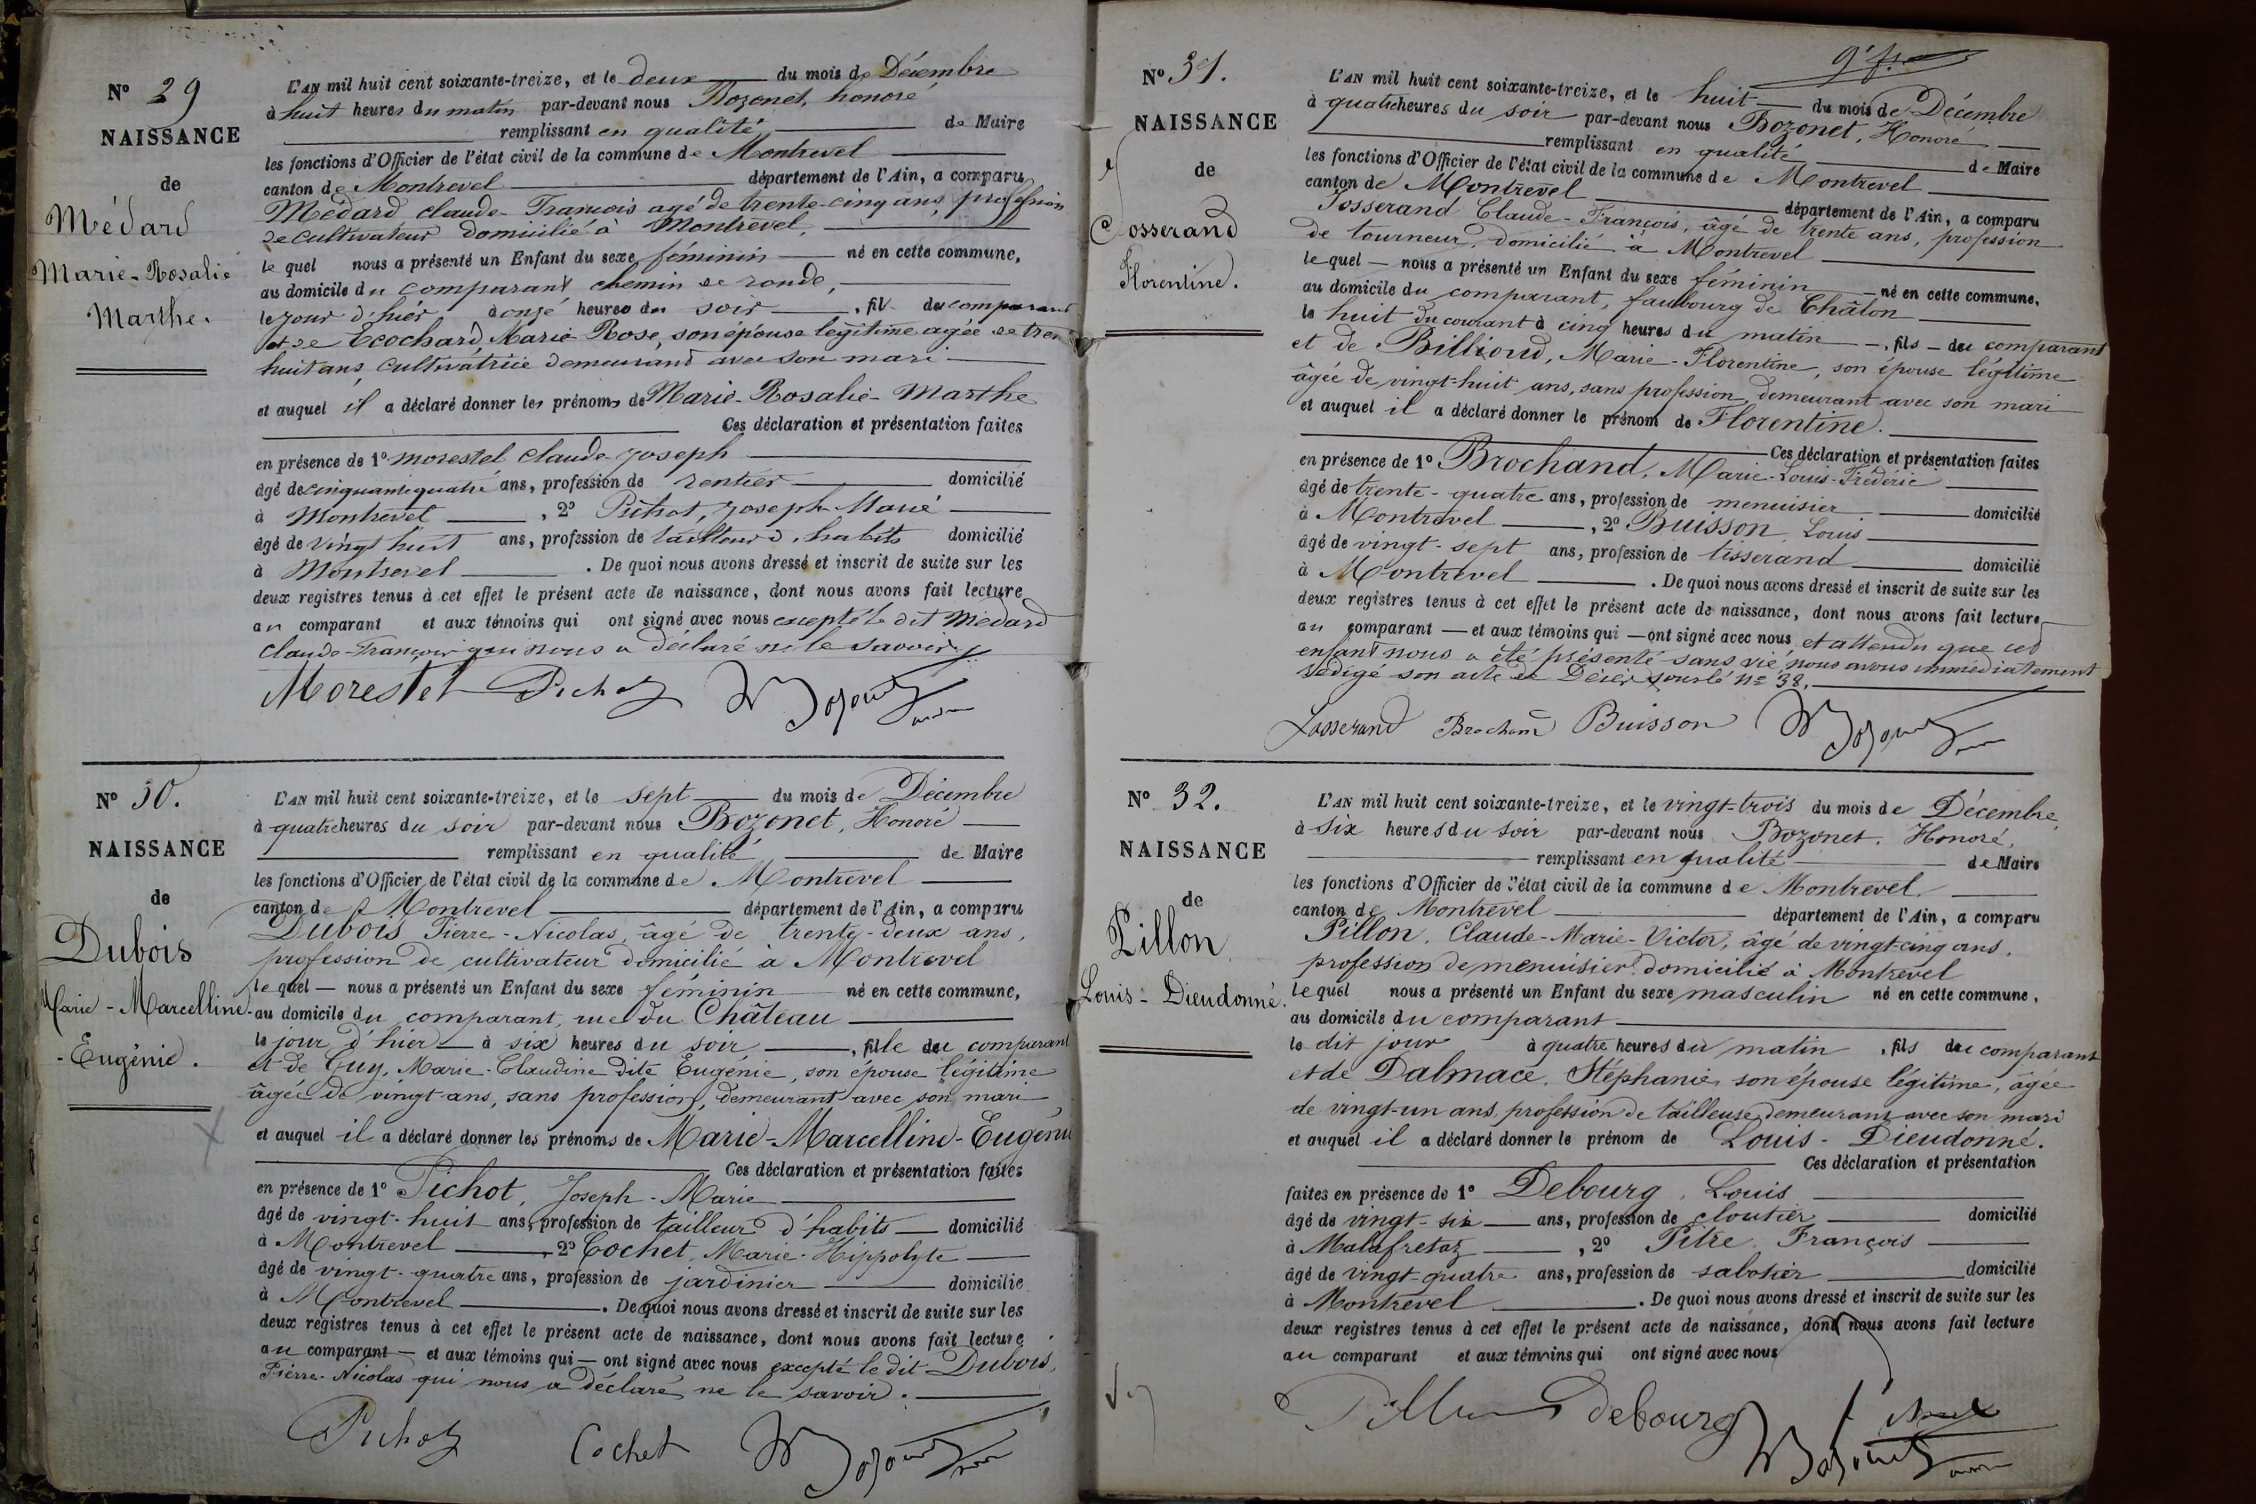 N° 29
NAISSANCE
de
Médard
Marie-Rosalie
Marthe.
L'AN mil huit cent soixante-treize, et le deux du mois de Décembre
à huit heures du matin par-devant nous Bozonet, honoré
remplissant en qualité de Maire
les fonctions d'Officier de l'état civil de la commune de Montrevel
canton de Montrevel département de l'Ain, a comparu
Médard claude-François agé de trente-cinq ans, profession
de cultivateur domicilié à Montrevel,
le quel nous a présenté un Enfant du sexe féminin né en cette commune,
au domicile du comparant chemin de ronde,
le jour d'hier à onze heures du soir, fil du comparant
et de Ecochard, Marie Rose, son épouse légitime agée de tren
huit ans, cultivatrice demeurant avec son mari
et auquel il a déclaré donner les prénoms de Marie-Rosalie-Marthe
Ces déclaration et présentation faites
en présence de 1° morestel claude-joseph
âgé de cinquante quatre ans, profession de rentier domicilié
à Montrevel, 2° Pichot, joseph Marie
âgé de vingt huit ans, profession de tailleur d'habits domicilié
à Montrevel. De quoi nous avons dressé et inscrit de suite sur les
deux registres tenus à cet effet le présent acte de naissance, dont nous avons fait lecture
au comparant et aux témoins qui ont signé avec nous excepté le dit Médard
claude-François qui nous a déclaré ne le savoir.
Morestel Pichot Bozonet
N° 30.
NAISSANCE
de
Dubois
Marie-Marcelline-
-Eugénie.
L'AN mil huit cent soixante-treize, et le sept du mois de Décembre
à quatre heures du soir par-devant nous Bozonet, Honoré
remplissant en qualité de Maire
les fonctions d'Officier de l'état civil de la commune de Montrevel
canton de Montrevel département de l'Ain, a comparu
Dubois Pierre-Nicolas, âgé de trente-deux ans,
profession de cultivateur domicilié à Montrevel
le quel — nous a présenté un Enfant du sexe féminin né en cette commune,
au domicile du comparant, rue du Château
le jour d'hier à six heures du soir, fille du comparant
et de Guy, Marie-Claudine dite Eugénie, son épouse légitime
âgée de vingt ans, sans profession, demeurant avec son mari
et auquel il a déclaré donner les prénoms de Marie-Marcelline-Eugénie
Ces déclaration et présentation faites
en présence de 1° Pichot, Joseph-Marie
âgé de vingt-huit ans, profession de tailleur d'habits domicilié
à Montrevel, 2° Cochet, Marie-Hippolyte
âgé de vingt-quatre ans, profession de jardinier domicilié
à Montrevel. De quoi nous avons dressé et inscrit de suite sur les
deux registres tenus à cet effet le présent acte de naissance, dont nous avons fait lecture
au comparant — et aux témoins qui — ont signé avec nous excepté le dit Dubois,
Pierre-Nicolas qui nous a déclaré ne le savoir.
Pichot Cochet Bozonet
N° 31.
NAISSANCE
de
Josserand
Florentine.
L'AN mil huit cent soixante-treize, et le huit du mois de Décembre
à quatre heures du soir par-devant nous Bozonet, Honoré
remplissant en qualité de Maire
les fonctions d'Officier de l'état civil de la commune de Montrevel
canton de Montrevel département de l'Ain, a comparu
Josserand Claude-François, âgé de trente ans, profession
de tourneur, domicilié à Montrevel
le quel — nous a présenté un Enfant du sexe féminin né en cette commune,
au domicile du comparant, faubourg de Châlon
le huit du courant à cinq heures du matin, fils du comparant
et de Billioud, Marie-Florentine, son épouse légitime
âgée de vingt-huit ans, sans profession, demeurant avec son mari
et auquel il a déclaré donner le prénom de Florentine.
Ces déclaration et présentation faites
en présence de 1° Brochand, Marie-Louis-Frédéric
âgé de trente-quatre ans, profession de menuisier domicilié
à Montrevel, 2° Buisson, Louis
âgé de vingt-sept ans, profession de tisserand domicilié
à Montrevel. De quoi nous avons dressé et inscrit de suite sur les
deux registres tenus à cet effet le présent acte de naissance, dont nous avons fait lecture
au comparant — et aux témoins qui — ont signé avec nous, et attendu que cet
enfant nous a été présenté sans vie, nous avons immédiatement
rédigé son acte de Décès sous le N° 38.
Josserand Brochand Buisson Bozonet
N° 32.
NAISSANCE
de
Pillon
Louis-Dieudonné.
L'AN mil huit cent soixante-treize, et le vingt-trois du mois de Décembre
à six heures du soir par-devant nous Bozonet, Honoré,
remplissant en qualité de Maire
les fonctions d'Officier de l'état civil de la commune de Montrevel
canton de Montrevel département de l'Ain, a comparu
Pillon, Claude-Marie-Victor, âgé de vingt-cinq ans,
profession de menuisier domicilié à Montrevel
le quel nous a présenté un Enfant du sexe masculin né en cette commune,
au domicile du comparant
le dit jour à quatre heures du matin, fils du comparant
et de Dalmace, Stéphanie, son épouse légitime, âgée
de vingt-un ans, profession de tailleuse, demeurant avec son mari
et auquel il a déclaré donner le prénom de Louis-Dieudonné.
Ces déclaration et présentation
faites en présence de 1° Debourg, Louis
âgé de vingt-six ans, profession de cloutier domicilié
à Malafretaz, 2° Pitre François
âgé de vingt-quatre ans, profession de sabotier domicilié
à Montrevel. De quoi nous avons dressé et inscrit de suite sur les
deux registres tenus à cet effet le présent acte de naissance, dont nous avons fait lecture
au comparant et aux témoins qui ont signé avec nous
Pillon debourg Bozonet